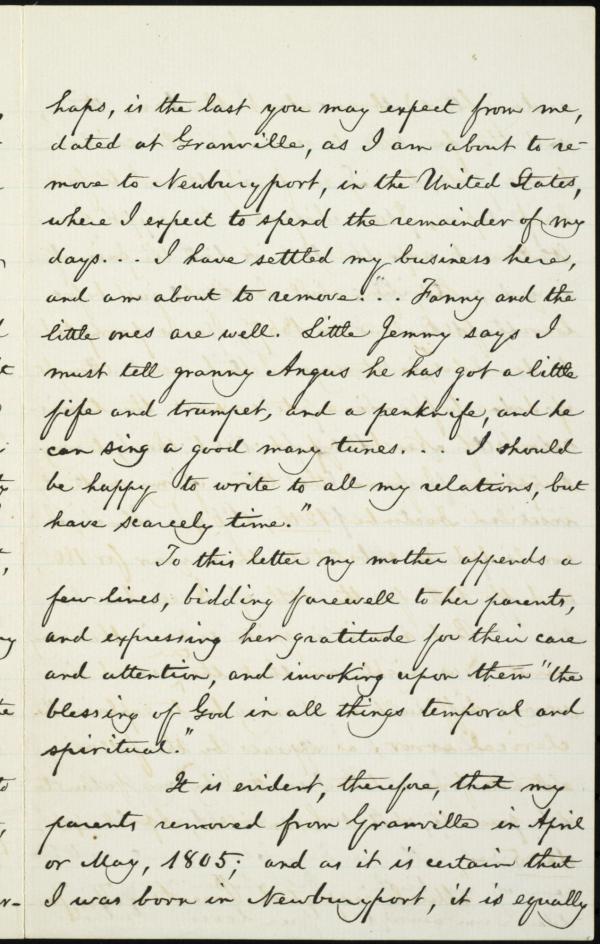 haps, is the last you may expect from me,
dated at Granville, as I am about to re-
move to Newburyport, in the United States,
where I expect to spend the remainder of my
days... I have settled my business here,
and am about to remove... Fanny and the
little ones are well. Little Jemmy says I
must tell granny Angus he has got a little
fife and trumpet, and a penknife, and he
can sing a good many tunes... I should
be happy to write to all my relations, but
have scarcely time."
To this letter my mother appends a
few lines, bidding farewell to her parents,
and expressing her gratitude for their care
and attention, and invoking upon them "the
blessing of God in all things temporal and
spiritual."
It is evident, therefore, that my
parents removed from Granville in April
or May, 1805; and as it is certain that
I was born in Newburyport, it is equally